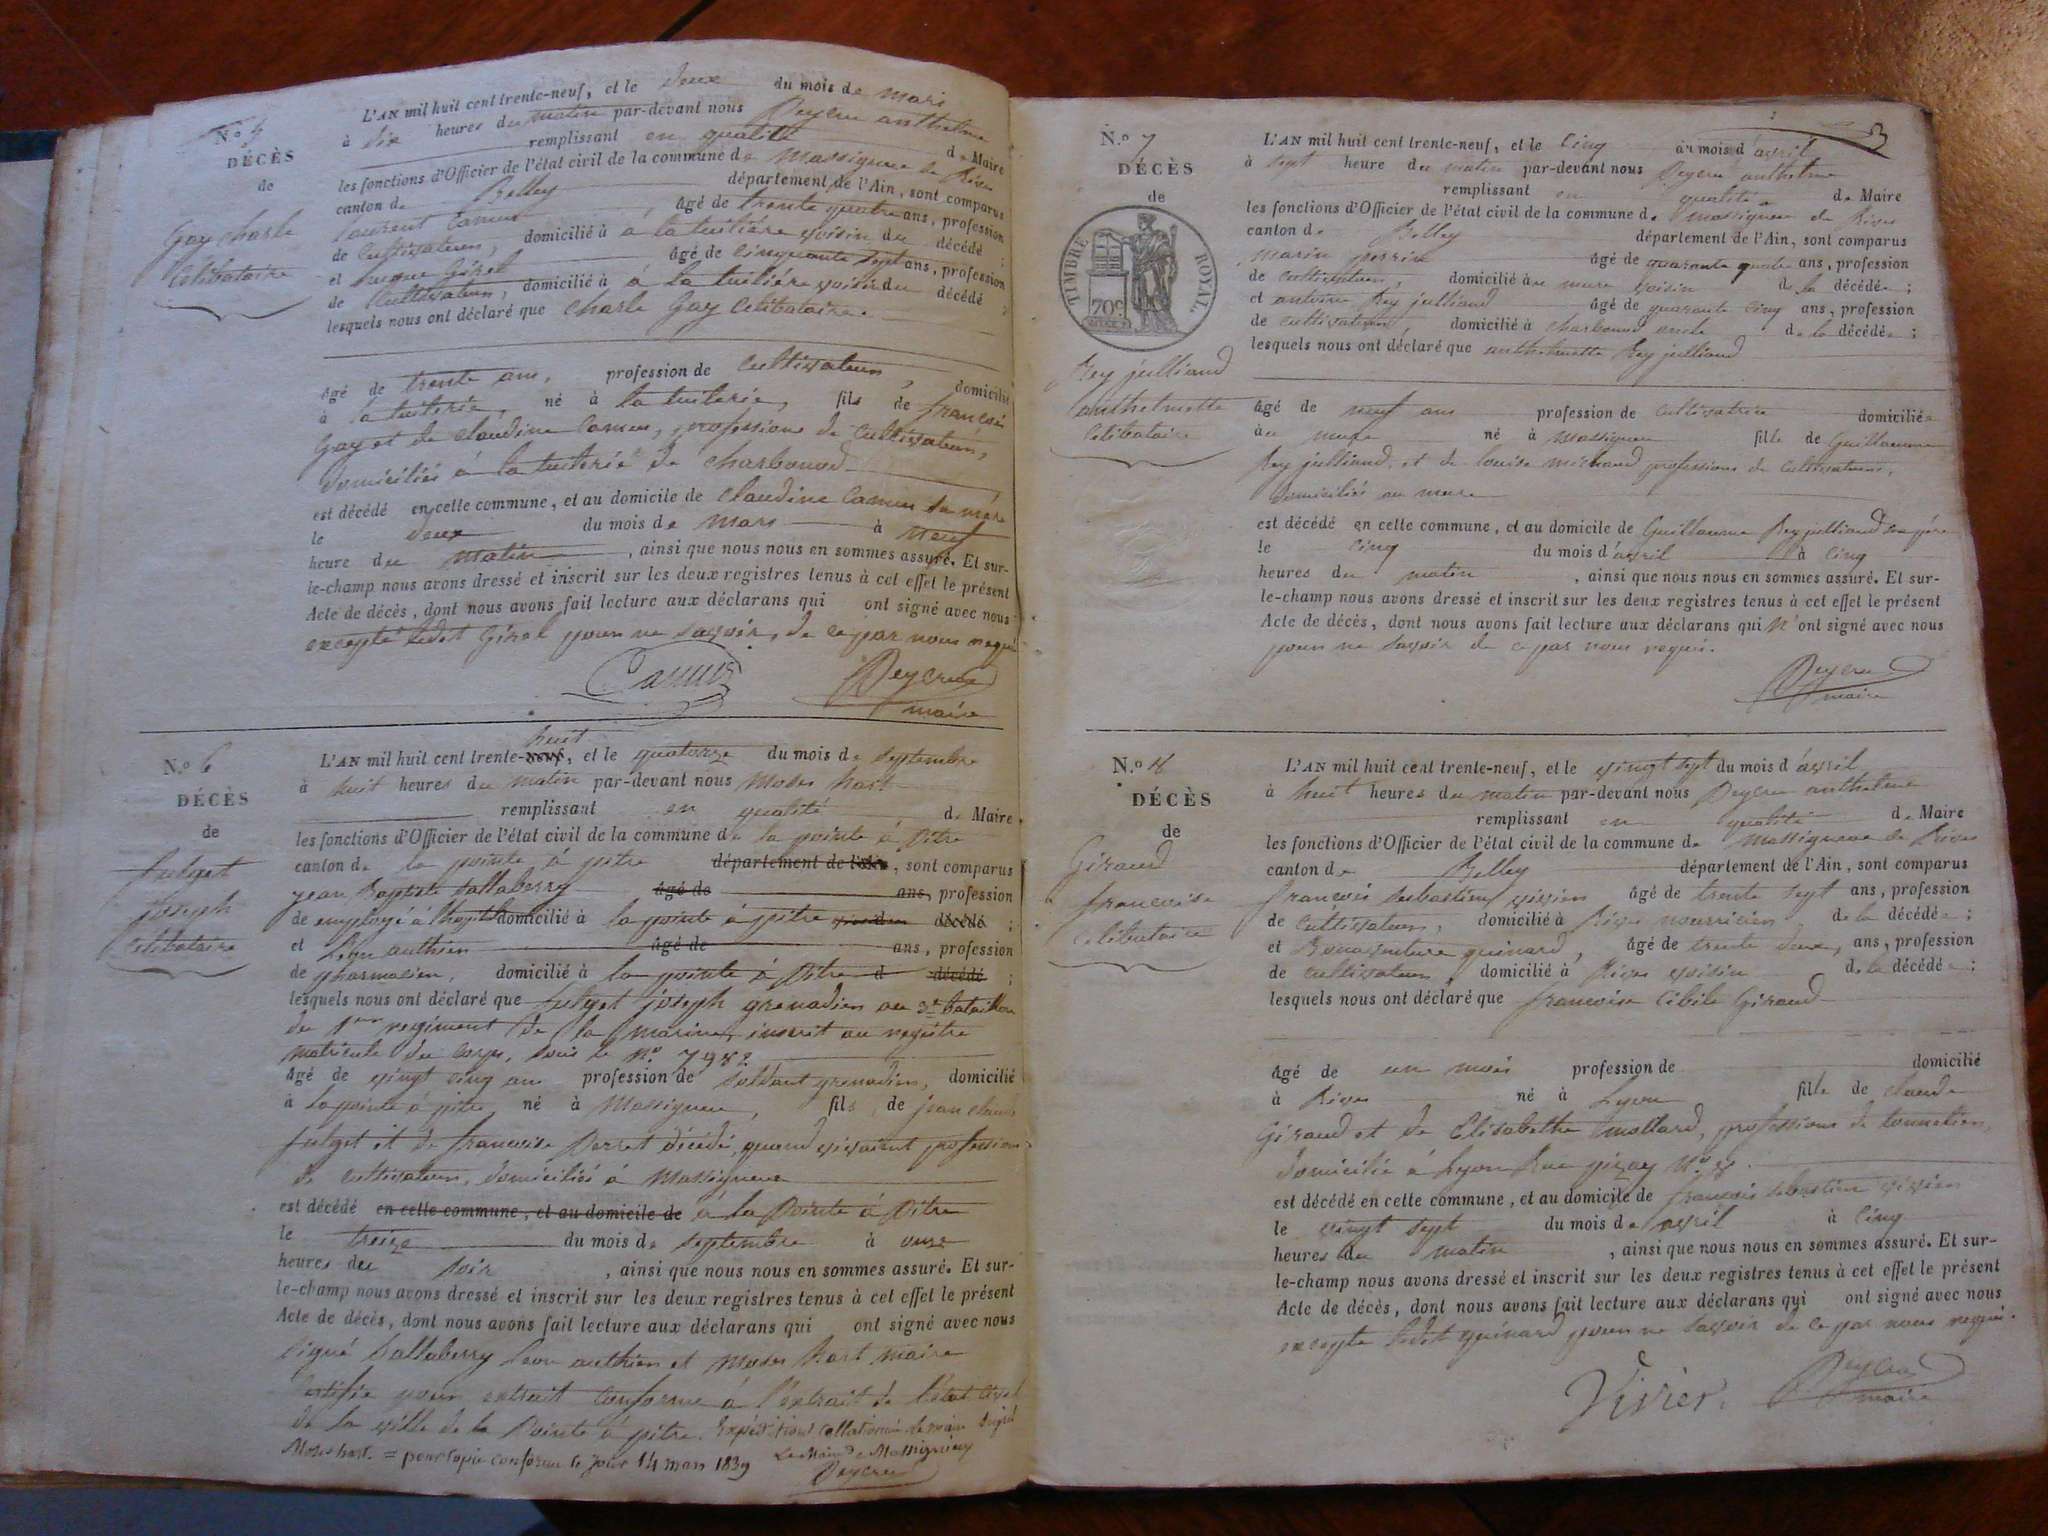 N.o 5
DÉCÈS
de
Gay charle
Célibataire
L'AN mil huit cent trente-neuf, et le deux du mois de mars
à dix heures du matin par-devant nous Peyera anthelme
remplissant en qualité de Maire
les fonctions d'Officier de l'état civil de la commune de Massigneu de Rives
canton de Belley département de l'Ain, sont comparus
laurent Camus âgé de trente quatre ans, profession
de Cultivateur, domicilié à à la tuiliére voisin du décédé ;
et âgé de cinquante sept ans, profession
de Cultivateur, domicilié à à la tuiliére voisin du décédé ;
lesquels nous ont déclaré que charle Gay Célibataire.
âgé de trente ans, profession de Cultivateur, domicilié
à la tuilerie, né à la tuilerie, fils de francois
Gay et de claudine Camus, professions de Cultivateurs,
domiciliés à la tuilerie de charbonod
est décédé en cette commune, et au domicile de claudine Camus sa mére
le deux du mois de mars à neuf
heure du matin, ainsi que nous nous en sommes assuré. Et sur-
le-champ nous avons dressé et inscrit sur les deux registres tenus à cet effet le présent
Acte de décès, dont nous avons fait lecture aux déclarans qui ont signé avec nous
excepté ledit pour ne savoir, de ce par nous requis
Camus Peyera
maire
N.o 6
DÉCÈS
de
fulget
joseph
Célibataire
L'AN mil huit cent trente-neuf huit, et le quatorze du mois de septembre
à huit heures du matin par-devant nous Modes hart
remplissant en qualité de Maire
les fonctions d'Officier de l'état civil de la commune de la pointe à pitre
canton de la pointe à pitre département de l'Ain, sont comparus
jean Baptiste Sallaberry âgé de ans, profession
de employé à l'hopital domicilié à la pointe à pitre décédé ;
et Léon authien âgé de ans, profession
de pharmacien, domicilié à la pointe à pitre d décédé ;
lesquels nous ont déclaré que fulget joseph grenadier au 3e bataillon
du 1er regiment de la marine, inscrit au registre
matricule du corps, sous le N.o 7982
âgé de vingt cinq ans profession de soldat grenadier, domicilié
à la pointe à pitre né à Massigneu, fils de jean claude
fulget et de francoise Perret décédé, quand vivaient professions
de cultivateurs, domiciliés à Massigneu
est décédé en cette commune, et au domicile de à la Pointe à Pitre
le treize du mois de septembre à onze
heures du soir, ainsi que nous nous en sommes assuré. Et sur-
le-champ nous avons dressé et inscrit sur les deux registres tenus à cet effet le présent
Acte de décès, dont nous avons fait lecture aux déclarans qui ont signé avec nous
signé Sallaberry Leon authien et Modes hart maire
Certifié pour extrait conforme à l'extrait de l'état civil
de la ville de la Pointe à pitre. Expédition collationnée le maire signé
Modes hart. = pour copie conforme ce jour 14 mars 1839 Le Maire de Massigneu
Peyera
3
N.o 7
DÉCÈS
de
TIMBRE ROYAL
70c
Rey julliand
anthelmette
Célibataire
L'AN mil huit cent trente-neuf, et le cinq du mois d'avril
à sept heure du matin par-devant nous Peyera anthelme
remplissant en qualité de Maire
les fonctions d'Officier de l'état civil de la commune de massigneu de Rives
canton de Belley département de l'Ain, sont comparus
marin perrin âgé de quarante quatre ans, profession
de cultivateur, domicilié au mure voisin de la décédée ;
et antoine Rey julliand âgé de quarante cinq ans, profession
de cultivateur, domicilié à charbonod oncle de la décédée ;
lesquels nous ont déclaré que anthelmette Rey julliand
âgé de neuf ans profession de cultivatrice domiciliée
au mure né à Massigneu fille de Guillaume
Rey julliand, et de louise michaud professions de cultivateurs,
domiciliés au mure
est décédé en cette commune, et au domicile de Guillaume Rey julliand son pére
le cinq du mois d'avril à cinq
heures du matin, ainsi que nous nous en sommes assuré. Et sur-
le-champ nous avons dressé et inscrit sur les deux registres tenus à cet effet le présent
Acte de décès, dont nous avons fait lecture aux déclarans qui n'ont signé avec nous
pour ne savoir de ce par nous requis.
Peyera
maire
N.o 8
DÉCÈS
de
Giraud
francoise
Célibataire
L'AN mil huit cent trente-neuf, et le vingt sept du mois d'avril
à huit heures du matin par-devant nous Peyera anthelme
remplissant en qualité de Maire
les fonctions d'Officier de l'état civil de la commune de Massigneu de Rives
canton de Belley département de l'Ain, sont comparus
francois sebastien vivier âgé de trente sept ans, profession
de cultivateur, domicilié à Rives nourricier de la décédée ;
et Bonaventure quinard, âgé de trente deux, ans, profession
de cultivateur domicilié à Rives voisin de la décédée ;
lesquels nous ont déclaré que francoise Cibile Giraud
âgé de un mois profession de domicilié
à Rives né à Lyon fille de claude
Giraud et de Elisabethe mollard, professions de tonnelier,
domicilié à Lyon Rue pizay N.o 8
est décédé en cette commune, et au domicile de francois sebastien vivier
le vingt sept du mois de avril à cinq
heures du matin, ainsi que nous nous en sommes assuré. Et sur-
le-champ nous avons dressé et inscrit sur les deux registres tenus à cet effet le présent
Acte de décès, dont nous avons fait lecture aux déclarans qui ont signé avec nous
excepté ledit quinard pour ne savoir de ce par nous requis.
Vivier. Peyera
maire